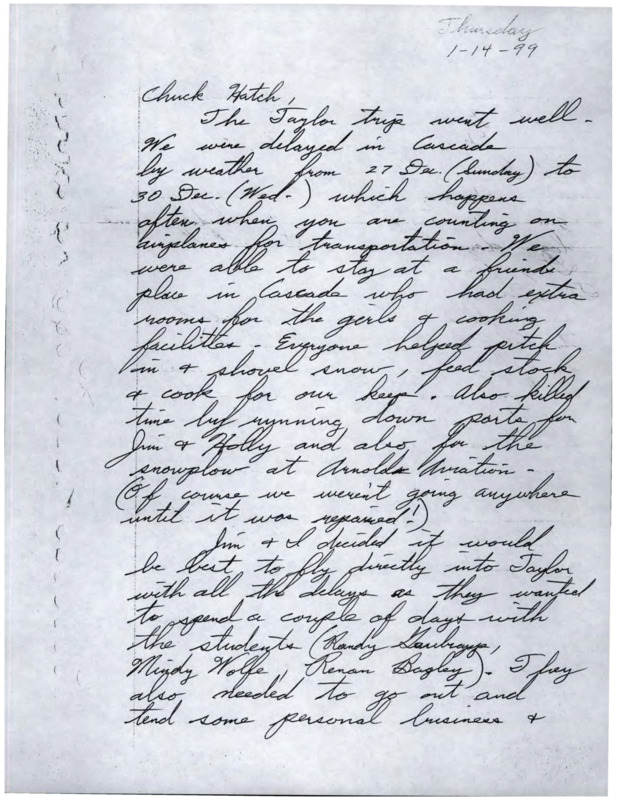 Thursday
1-14-99
Chuck Hatch,
The Taylor trip went well.
We were delayed in Cascade
by weather from 27 Dec. (Sunday) to
30 Dec. (Wed.) which happens
often when you are counting on
airplanes for transportation. We
were able to stay at a friends
place in Cascade who had extra
rooms for the girls & cooking
facilities. Everyone helped pitch
in & shovel snow, feed stock
& cook for our keep. Also killed
time by running down parts for
Jim & Holly and also for the
snowplow at Arnolds Aviation.
(Of course we weren't going anywhere
until it was repaired!)
Jim & I decided it would
be best to fly directly into Taylor
with all the delays as they wanted
to spend a couple of days with
the students (Randy
Mindy Wolfe, Renan Bagley). They
also needed to go out and
tend some personal business &